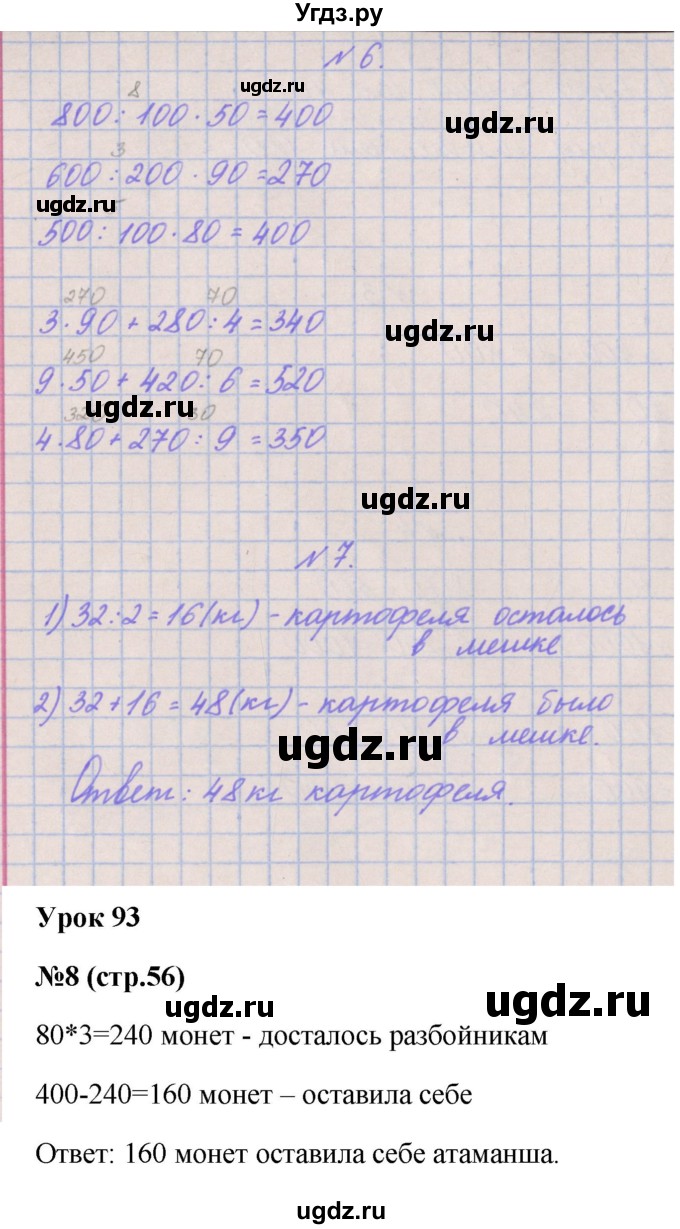 Угдз.ру
N 6.
ugdz.ru
8
800 : 100 · 50 = 400
ugdz.ru
3
600 : 200 · 90 = 270
ugdz.ru
500 : 100 · 80 = 400
270 70
3 · 90 + 280 : 4 = 340
ugdz.ru
450 70
9 · 50 + 420 : 6 = 520
ugdz.ru
4 · 80 + 270 : 9 = 350
ugdz.ru
N 7.
1) 32 : 2 = 16 (кг) - картофеля осталось
в мешке
2) 32 + 16 = 48 (кг) - картофеля было
в мешке.
ugdz.ru
Ответ: 48 кг картофеля.
Урок 93
№8 (стр.56)
ugdz.ru
ugdz.ru
80*3=240 монет - досталось разбойникам
400-240=160 монет – оставила себе
Ответ: 160 монет оставила себе атаманша.
ugdz.ru